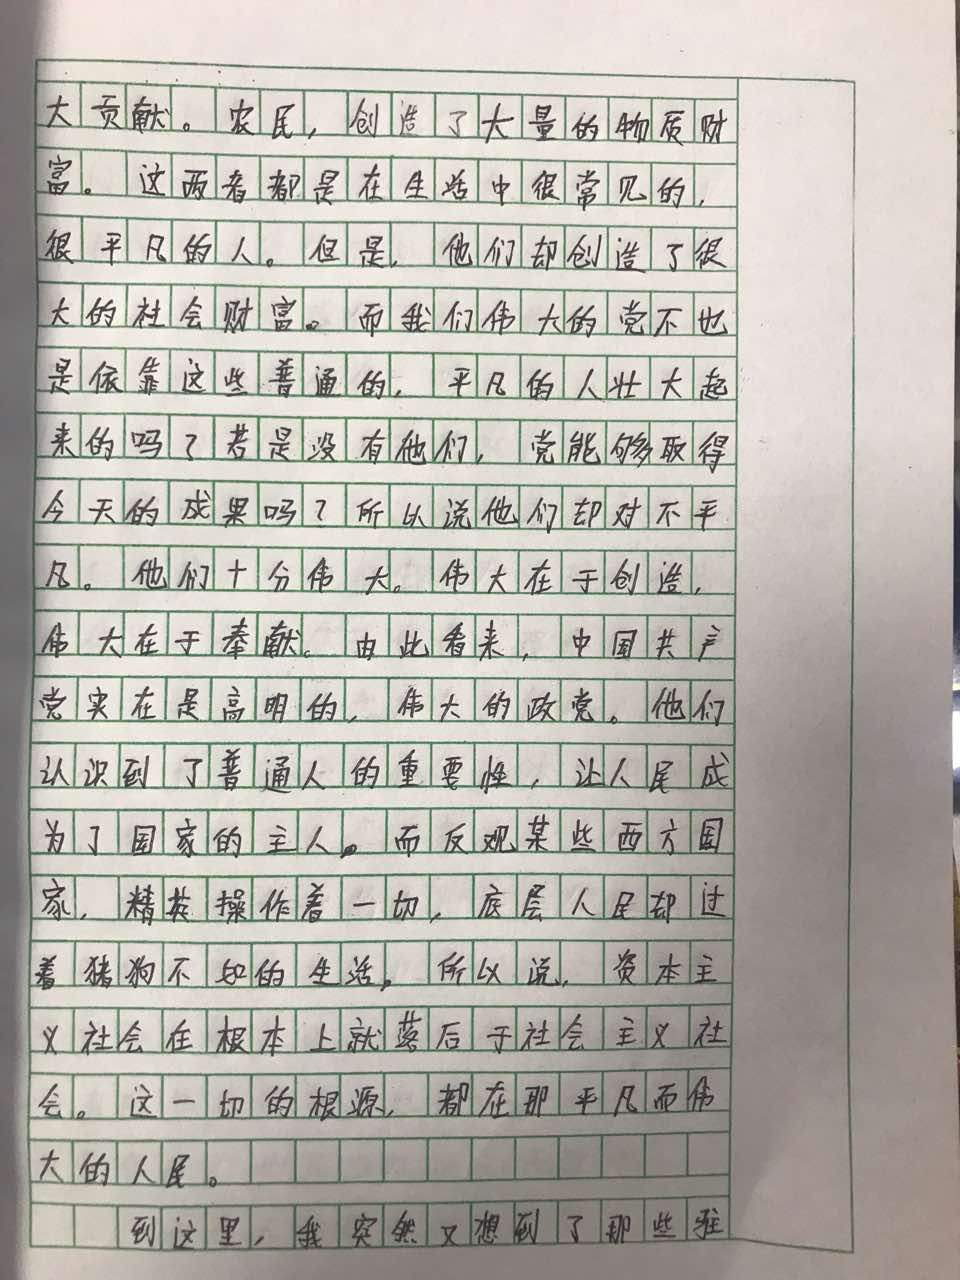 大贡献。农民，创造了大量的物质财
富。这两者都是在生活中很常见的，
很平凡的人。但是，他们却创造了很
大的社会财富。而我们伟大的党不也
是依靠这些普通的，平凡的人壮大起
来的吗？若是没有他们，党能够取得
今天的成果吗？所以说他们却对不平
凡。他们十分伟大。伟大在于创造，
伟大在于奉献。由此看来，中国共产
党实在是高明的，伟大的政党。他们
认识到了普通人的重要性，让人民成
为了国家的主人。而反观某些西方国
家，精英操作着一切，底层人民却过
着猪狗不如的生活。所以说，资本主
义社会在根本上就落后于社会主义社
会。这一切的根源，都在那平凡而伟
大的人民。
到这里，我突然又想到了那些驻